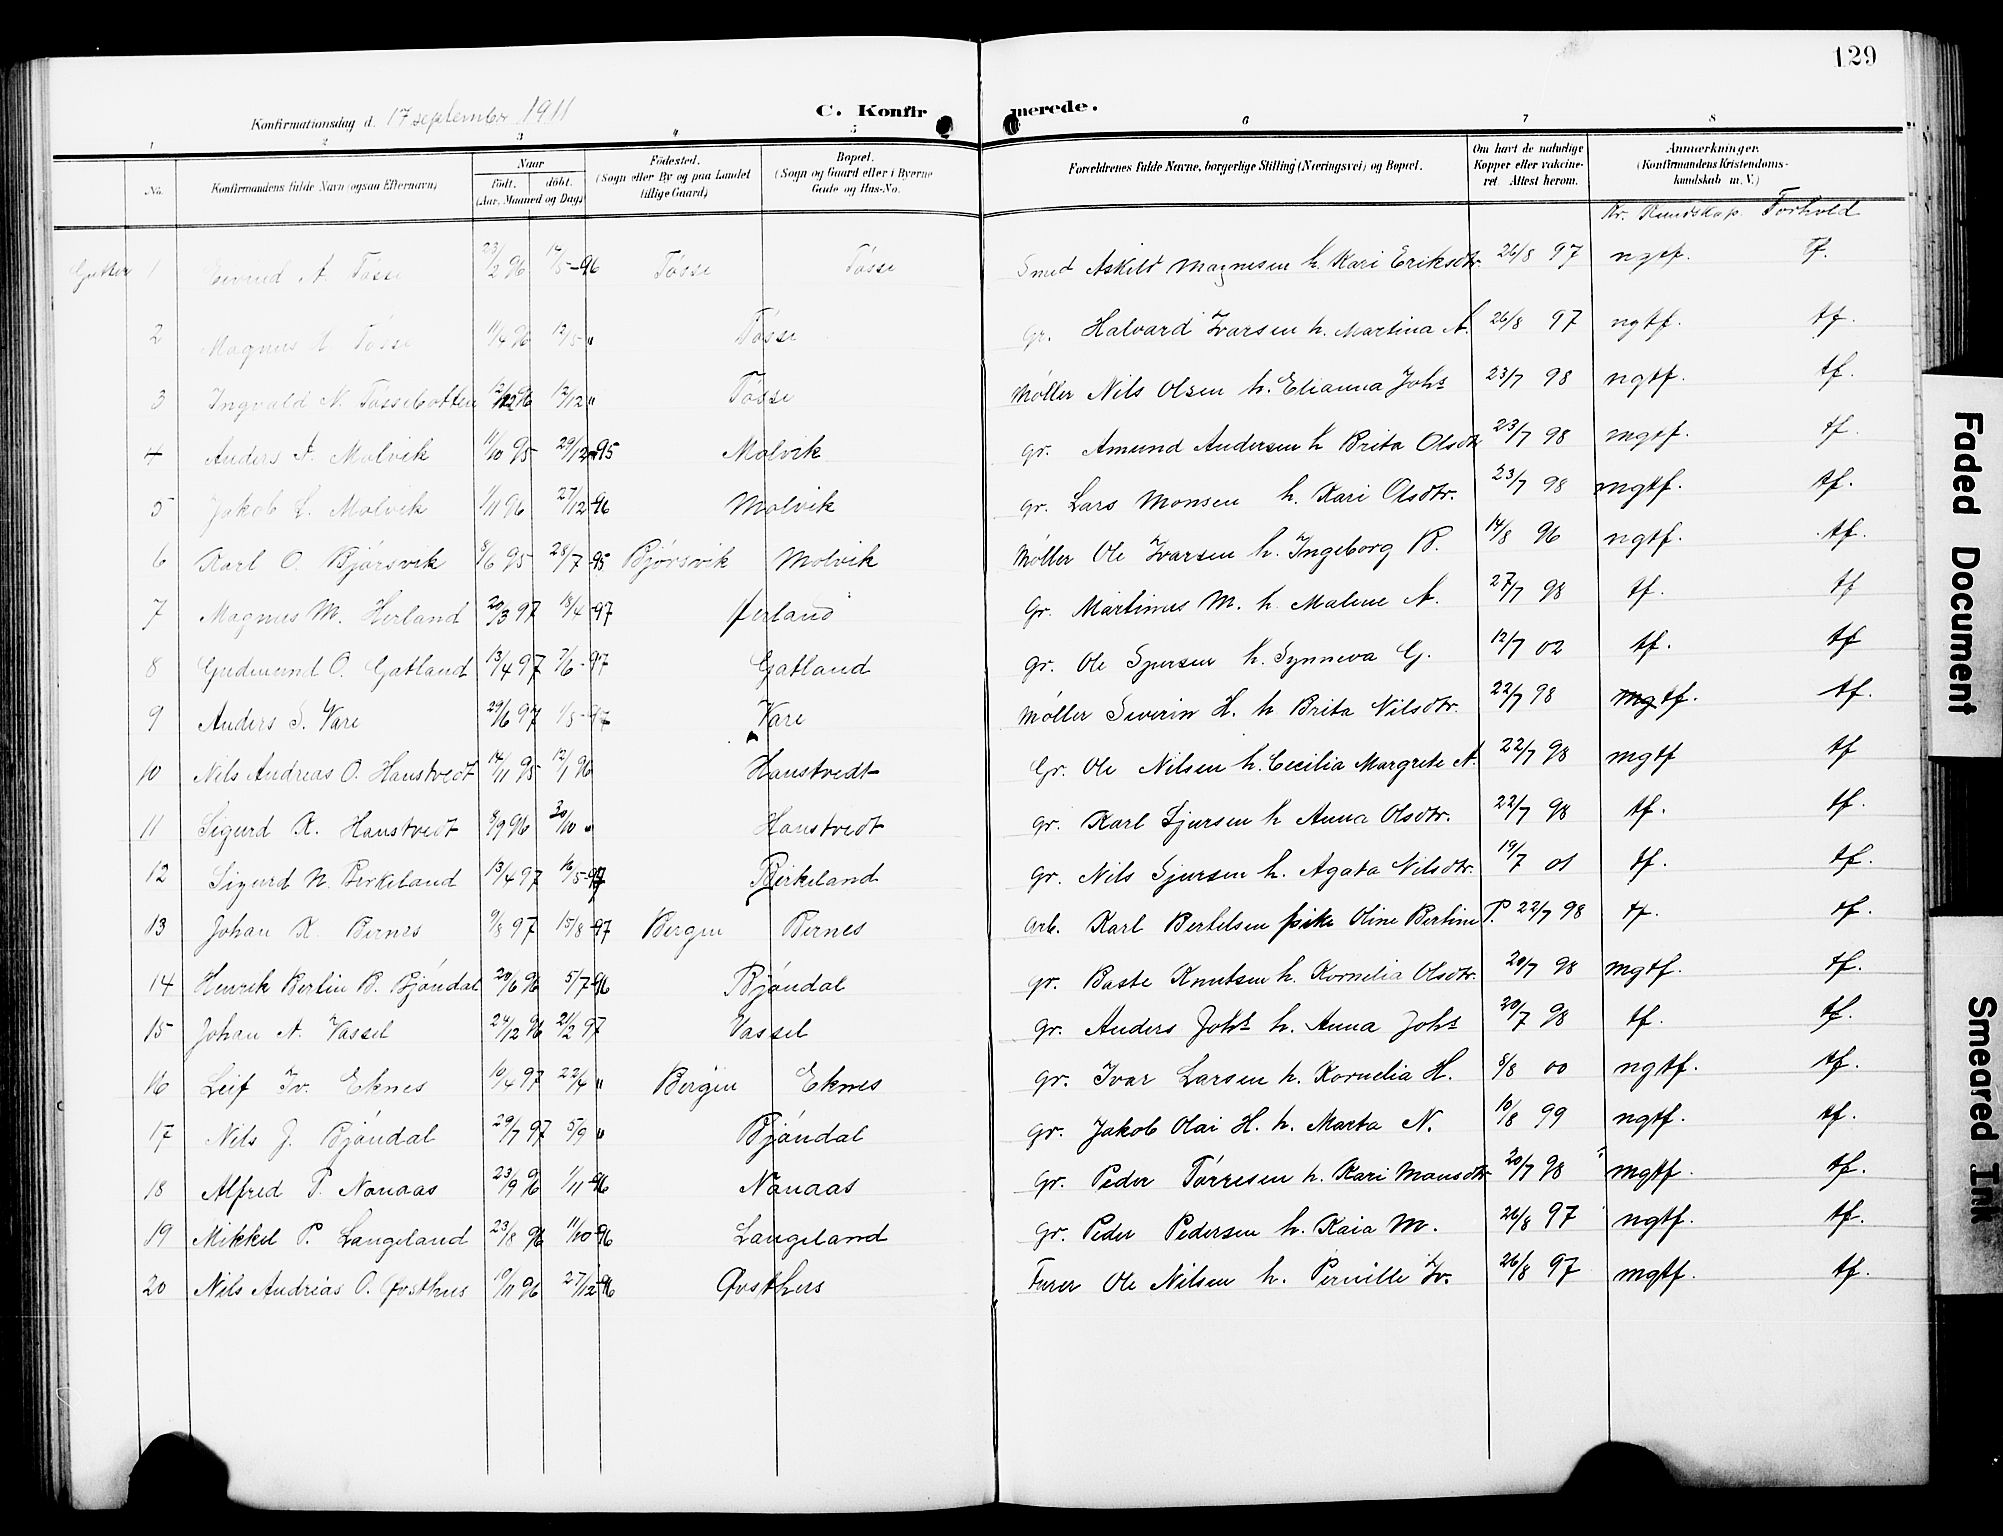 129
Konfirmationsdag d. 17 september 1911
C. Konfirmerede.
1 2 3 4 5 6 7 8
No. Konfirmandens fulde Navn (ogsaa Efternavn) Naar födt. döbt. (Aar, Maaned og Dag) Födested. (Sogn eller By og paa Landet tillige Gaard) Bopæl. (Sogn og Gaard eller i Byerne Gade og Hus-No. Forældrenes fulde Navne, borgerlige Stilling (Næringsvei) og Bopæl. Om havt de naturlige Kopper eller vaccineret. Attest herom. Anmærkninger. (Konfirmandens Kristendomskundskab m. V.)
Kr. Kundskap Forhold
Gutter 1 Eivind A. Tosse 23/2 96 17/5-96 Tosse Tosse Smed Askild Magnesen h. Kari Eriksdtr. 26/8 97 ngtf. tf.
2 Magnus H. Tosse 11/4 96 12/5 " Tosse Gr. Halvard Ivarsen h. Martina A. 26/8 97 ngtf. tf.
3 Ingvald N. Tossebotten 12/12 " Tosse Møller Nils Olsen h. Elianna Johs 23/7 98 ngtf. tf.
4 Anders A. Molvik 11/10 95 29/12-95 Molvik gr. Amund Andersen h Brita Olsdtr 23/7 98 mgtf. tf.
5 Jakob L. Molvik 1/11 96 27/12-96 Molvik gr. Lars Monsen h. Kari Olsdtr. 23/7 98 mgtf. tf.
6 Karl O. Bjørsvik 8/6 95 28/7-95 Bjørsvik Molvik Møller Ole Ivarsen h. Ingeborg B. 14/8 96 ngtf. tf.
7 Magnus M. Herland 20/3 97 18/4-97 Herland Gr. Martinus M. h. Malene A. 27/7 98 tf. tf
8 Gudmund O. Gatland 13/4 97 7/6-97 Gatland gr. Ole Sjursen h. Synneva G. 12/7 02 tf. tf
9 Anders S. Vare 29/6 97 1/8-97 Vare Møller Severin H. h Brita Nilsdtr. 22/7 98 mgtf. tf.
10 Nils Andreas O. Hanstvedt 14/11 95 12/1 96 Hanstvedt Gr. Ole Nilsen h. Cecilia Margrete A. 22/7 98 mgtf tf
11 Sigurd K. Hanstvedt 8/9 96 30/10 " Hanstvedt gr. Karl Sjursen h Anna Olsdtr. 22/7 98 tf. tf.
12 Sigurd N. Birkeland 13/4 97 16/5-97 Birkeland gr. Nils Sjursen h. Agata Nilsdtr. 19/7 01 tf. tf.
13 Johan K. Bernes 9/8 97 15/8-97 Bergen Bernes arb. Karl Bertelsen pike Oline Bertine P. 22/7 98 tf. tf.
14 Henrik Bertin B. Bjøndal 20/6 96 5/7-96 Bjøndal gr. Baste Knutsen h. Kornelia Olsdtr. 20/7 98 mgtf. tf.
15 Johan A. Vassel 24/12 96 21/2 97 Vassel gr. Anders Johs h. Anna Johs 20/7 98 tf. tf.
16 Leif Iv. Eknes 10/4 97 22/4 " Bergen Eknes gr. Ivar Larsen h. Kornelia H. 8/8 00 ngtf. tf.
17 Nils J. Bjøndal 29/7 97 5/9 " Bjøndal gr. Jakob Olai H. h. Marta N. 10/8 99 ngtf. tf.
18 Alfred P. Nonaas 23/9 96 1/11-96 Nonaas Gr. Peder Torresen h. Kari Monsdtr 20/7 98 mgtf. tf.
19 Mikkel P. Langeland 23/8 96 11/10-96 Langeland Gr. Peder Pedersen h. Kaia M. 26/8 97 ngtf. tf.
20 Nils Andreas O. Øvsthus 19/11 96 27/12-96 Øvsthus Furer Ole Nilsen h. Pernille Iv. 26/8 97 mgtf. tf.
Faded Document
Smeared Ink